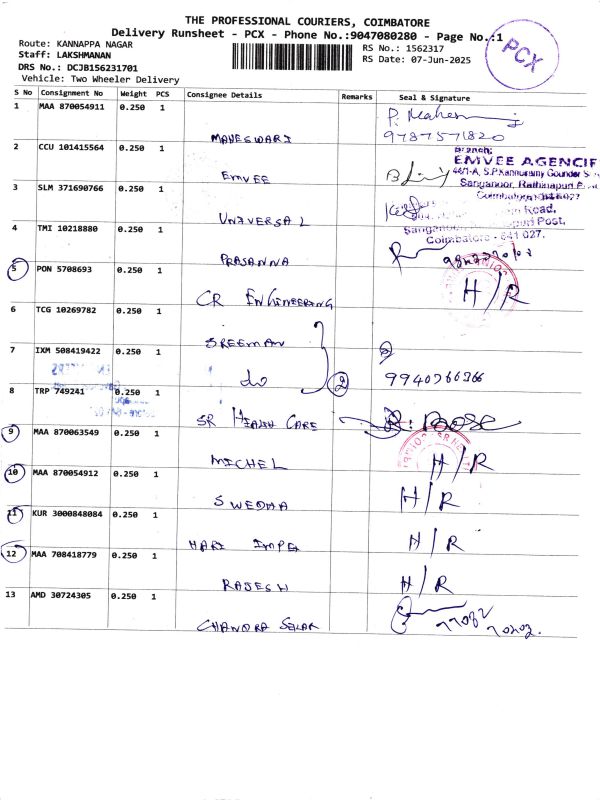 THE PROFESSIONAL COURIERS, COIMBATORE
Delivery Runsheet - PCX - Phone No.:9047080280 - Page No.:1
Route: KANNAPPA NAGAR
Staff: LAKSHMANAN
DRS No.: DCJB156231701
Vehicle: Two Wheeler Delivery
RS No.: 1562317
RS Date: 07-Jun-2025
PCX
S No Consignment No Weight PCS Consignee Details Remarks Seal & Signature
1 MAA 870054911 0.250 1 MAHESWARI
9787571820
2 CCU 101415564 0.250 1 EMVEE
Branch:
EMVEE AGENCIE
46/1-A, S.P.Kannusamy Gounder
Sanganoor, Rathinapuri
3 SLM 371690766 0.250 1 UNIVERSAL
Road,
Post,
Coimbatore - 641 027.
4 TMI 10218880 0.250 1 PRASANNA
5 PON 5708693 0.250 1 CR ENGINEERING H/R
6 TCG 10269782 0.250 1 SREEMAN
7 IXM 508419422 0.250 1 do 2 9940766366
8 TRP 749241 0.250 1 SR HEALTH CARE
9 MAA 870063549 0.250 1 MICHEL H/R
10 MAA 870054912 0.250 1 SWEDHA H/R
11 KUR 3000848084 0.250 1 HARI IMPEX H/R
12 MAA 708418779 0.250 1 RAJESH H/R
13 AMD 30724305 0.250 1 CHANDRA SEKAR